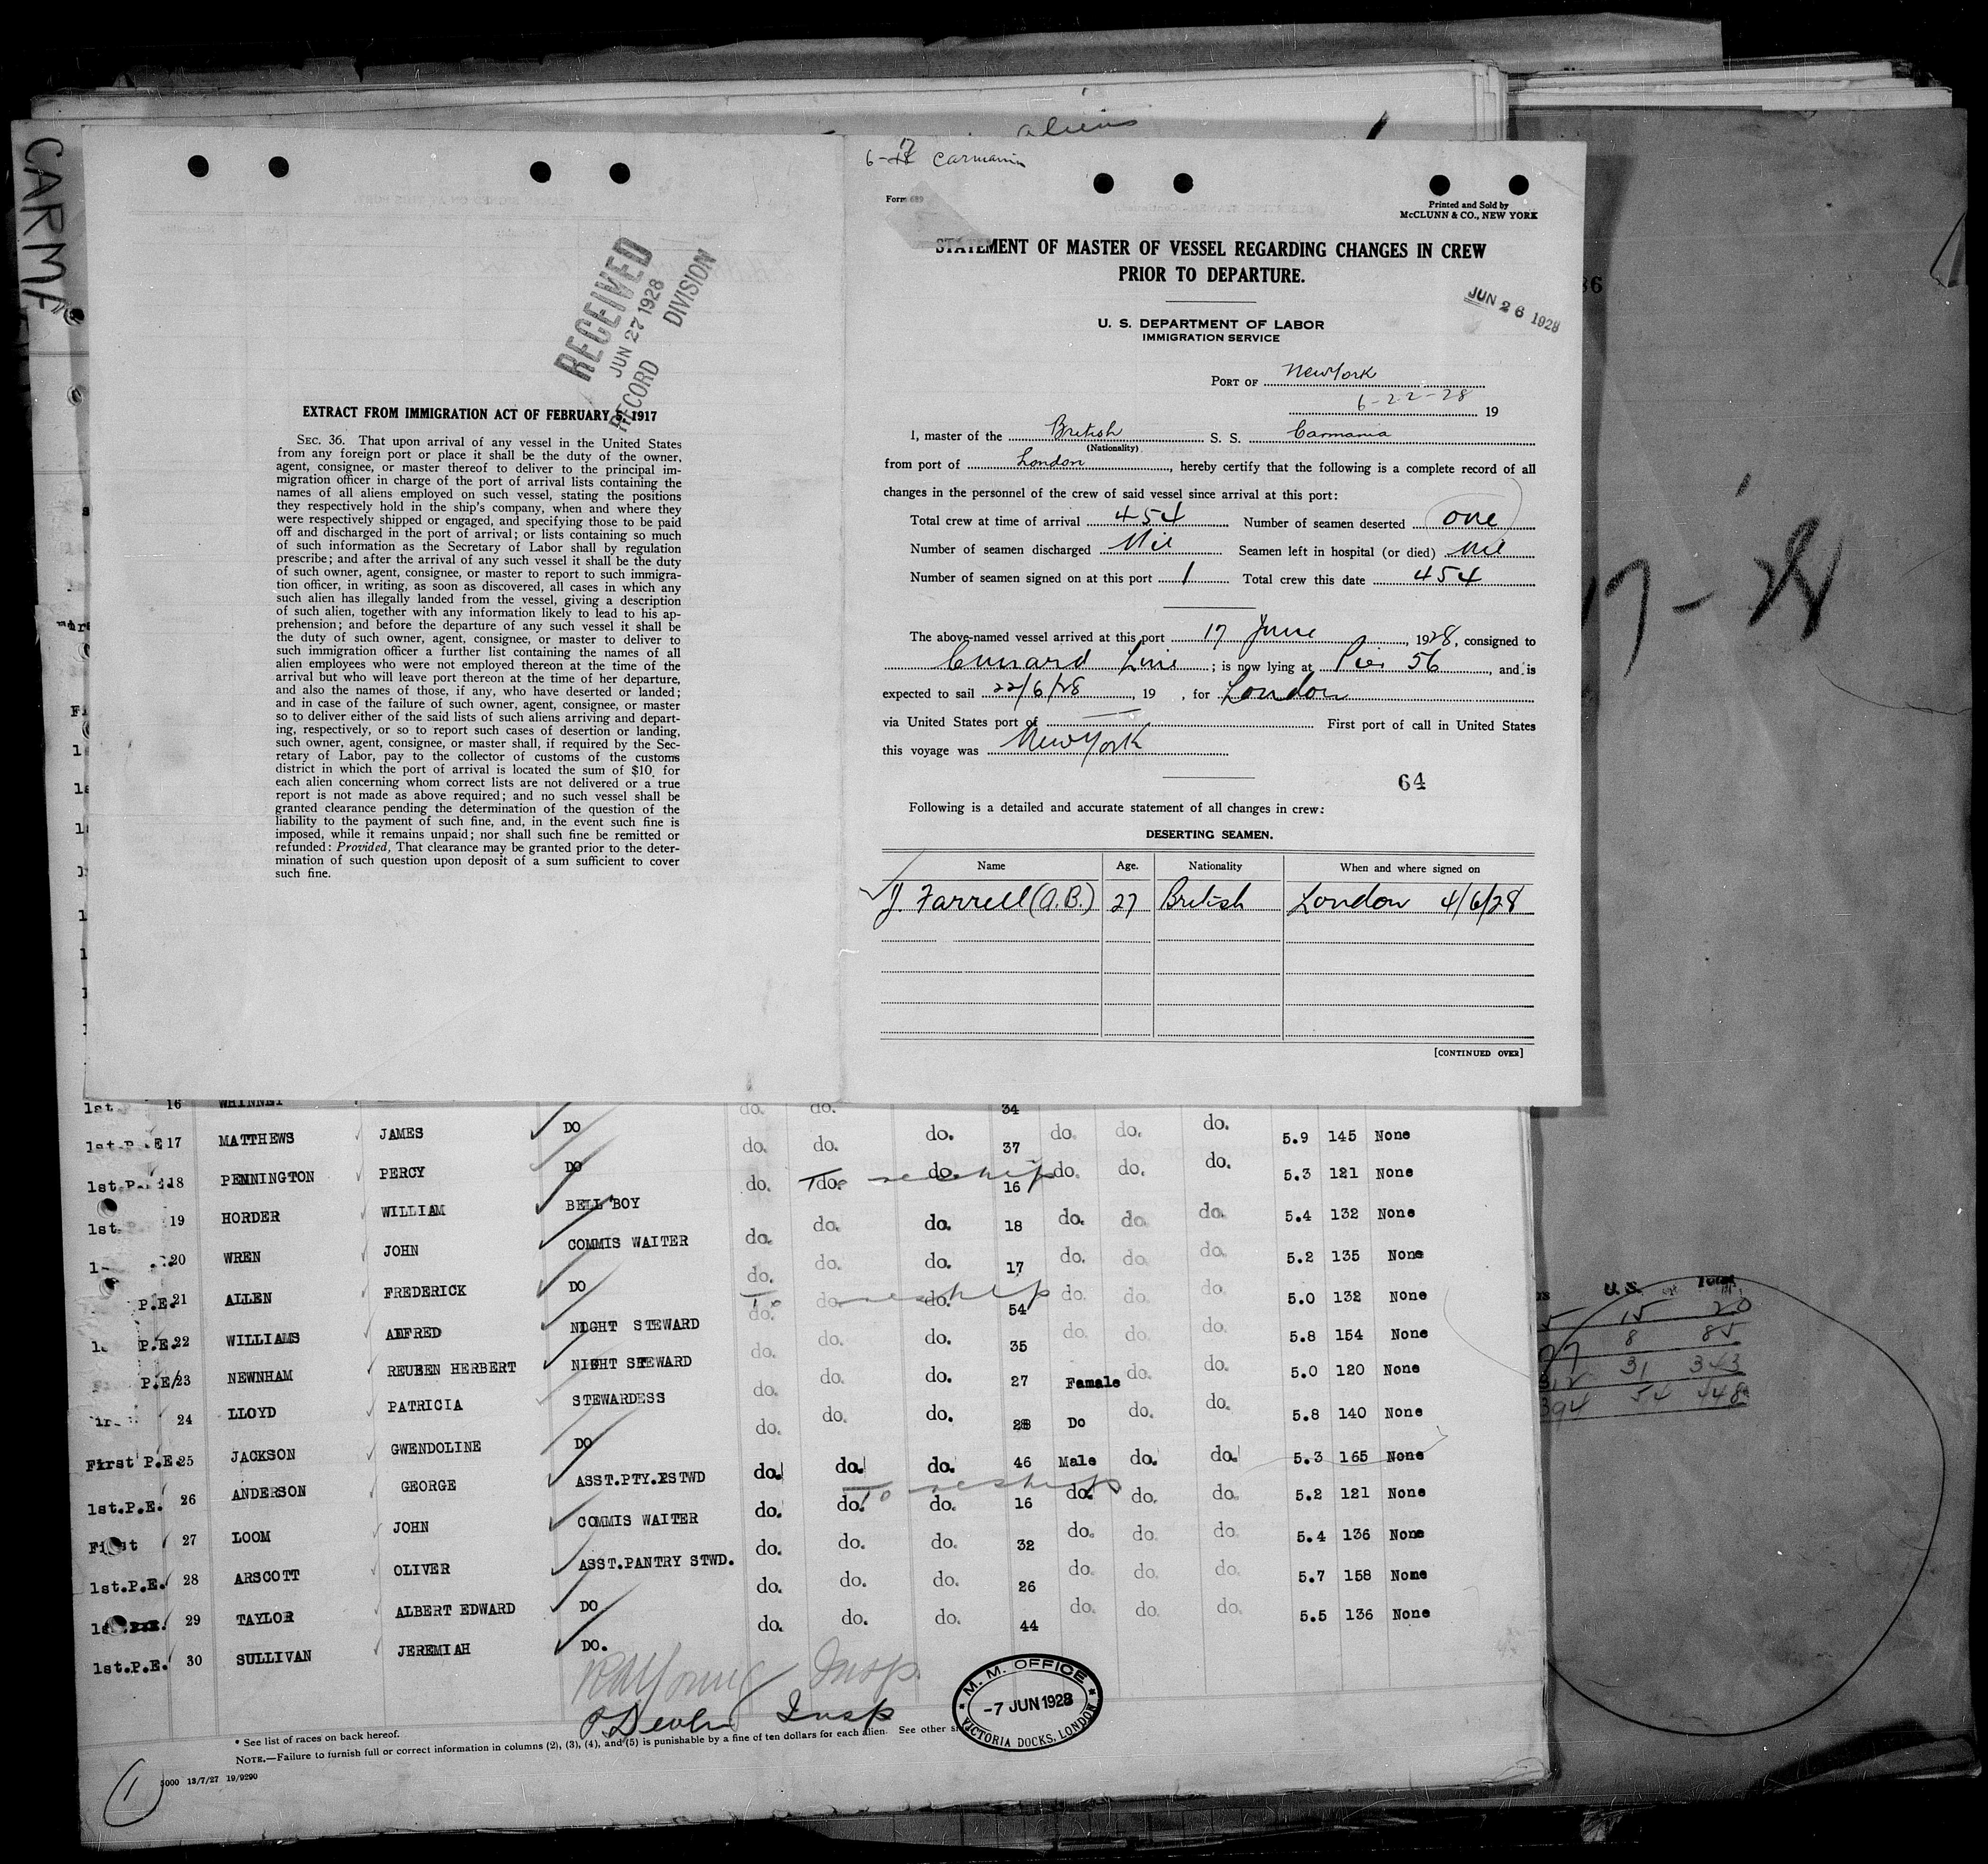 aliens
CARMA
6-17 Carmania
Form 689
Printed and Sold by
McCLUNN & CO., NEW YORK
STATEMENT OF MASTER OF VESSEL REGARDING CHANGES IN CREW
PRIOR TO DEPARTURE.
JUN 26 1928
U. S. DEPARTMENT OF LABOR
IMMIGRATION SERVICE
PORT OF New York
6-22-28 19
I, master of the British S. S. Carmania
(Nationality)
from port of London, hereby certify that the following is a complete record of all
changes in the personnel of the crew of said vessel since arrival at this port:
Total crew at time of arrival 454 Number of seamen deserted one
Number of seamen discharged Nil Seamen left in hospital (or died) Nil
Number of seamen signed on at this port 1 Total crew this date 454
The above-named vessel arrived at this port 17 June, 1928, consigned to
Cunard Line; is now lying at Pier 56, and is
expected to sail 22/6/28, 19 , for London
via United States port of — First port of call in United States
this voyage was New York
64
Following is a detailed and accurate statement of all changes in crew:
DESERTING SEAMEN.
Name Age. Nationality When and where signed on
J. Farrell (A.B.) 27 British London 4/6/28
[CONTINUED OVER]
RECEIVED
JUN 27 1928
RECORD DIVISION
EXTRACT FROM IMMIGRATION ACT OF FEBRUARY 5, 1917
SEC. 36. That upon arrival of any vessel in the United States
from any foreign port or place it shall be the duty of the owner,
agent, consignee, or master thereof to deliver to the principal im-
migration officer in charge of the port of arrival lists containing the
names of all aliens employed on such vessel, stating the positions
they respectively hold in the ship's company, when and where they
were respectively shipped or engaged, and specifying those to be paid
off and discharged in the port of arrival; or lists containing so much
of such information as the Secretary of Labor shall by regulation
prescribe; and after the arrival of any such vessel it shall be the duty
of such owner, agent, consignee, or master to report to such immigra-
tion officer, in writing, as soon as discovered, all cases in which any
such alien has illegally landed from the vessel, giving a description
of such alien, together with any information likely to lead to his ap-
prehension; and before the departure of any such vessel it shall be
the duty of such owner, agent, consignee, or master to deliver to
such immigration officer a further list containing the names of all
alien employees who were not employed thereon at the time of the
arrival but who will leave port thereon at the time of her departure,
and also the names of those, if any, who have deserted or landed;
and in case of the failure of such owner, agent, consignee, or master
so to deliver either of the said lists of such aliens arriving and depart-
ing, respectively, or so to report such cases of desertion or landing,
such owner, agent, consignee, or master shall, if required by the Sec-
retary of Labor, pay to the collector of customs of the customs
district in which the port of arrival is located the sum of $10 for
each alien concerning whom correct lists are not delivered or a true
report is not made as above required; and no such vessel shall be
granted clearance pending the determination of the question of the
liability to the payment of such fine, and, in the event such fine is
imposed, while it remains unpaid; nor shall such fine be remitted or
refunded: Provided, That clearance may be granted prior to the deter-
mination of such question upon deposit of a sum sufficient to cover
such fine.
1st. 16 WHINNEY do. do. 34
1st.P.E 17 MATTHEWS JAMES DO do. do. do. 37 do. do. do. 5.9 145 None
1st.P. 18 PENNINGTON PERCY DO do. do. do. 16 do. do. do. 5.3 121 None
To reship
1st. 19 HORDER WILLIAM BELL BOY do. do. do. 18 do. do. do. 5.4 132 None
20 WREN JOHN COMMIS WAITER do. do. do. 17 do. do. do. 5.2 135 None
P.E. 21 ALLEN FREDERICK DO do. do. do. 54 do. do. do. 5.0 132 None
To reship
P.E. 22 WILLIAMS ALFRED NIGHT STEWARD do. do. do. 35 do. do. do. 5.8 154 None
P.E/ 23 NEWNHAM REUBEN HERBERT NIGHT STEWARD do. do. do. 27 Famale do. do. 5.0 120 None
24 LLOYD PATRICIA STEWARDESS do. do. do. 28 Do do. do. 5.8 140 None
First P.E. 25 JACKSON GWENDOLINE DO do. do. do. 46 Male do. do. 5.3 165 None
1st.P.E. 26 ANDERSON GEORGE ASST.PTY.STWD do. do. do. 16 do. do. do. 5.2 121 None
To reship
First 27 LOOM JOHN COMMIS WAITER do. do. do. 32 do. do. do. 5.4 136 None
1st.P.E. 28 ARSCOTT OLIVER ASST.PANTRY STWD. do. do. do. 26 do. do. do. 5.7 158 None
29 TAYLOR ALBERT EDWARD DO do. do. do. 44 do. do. do. 5.5 136 None
1st.P.E. 30 SULLIVAN JEREMIAH DO.
Insp.
Insp
M. M. OFFICE
-7 JUN 1928
VICTORIA DOCKS, LONDON
* See list of races on back hereof.
NOTE.—Failure to furnish full or correct information in columns (2), (3), (4), and (5) is punishable by a fine of ten dollars for each alien. See other
5000 13/7/27 19/9290
1
7-28
U.S. Total
5 15 20
77 8 85
312 31 343
394 54 448